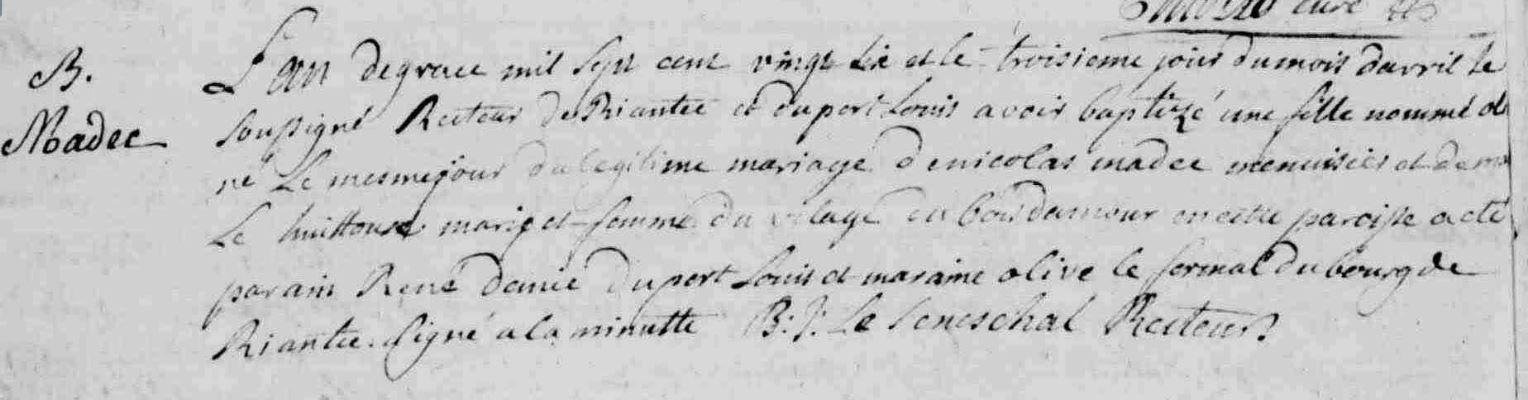 curé
B.
Madec
L'an de grace mil sept cent vingt six et le troisieme jour du mois davril le
soussigné Recteur de Riantec et du port Louis avoir baptizé une fille nommé ol
né le mesme jour du legitime mariage de nicolas madec menuisier et de
Le marie et femme du vilage du bois damour en cette paroisse a eté
parain René du port Louis et maraine olive le formal du bourg de
Riantec. signé a la minutte B: J: Le Seneschal Recteur